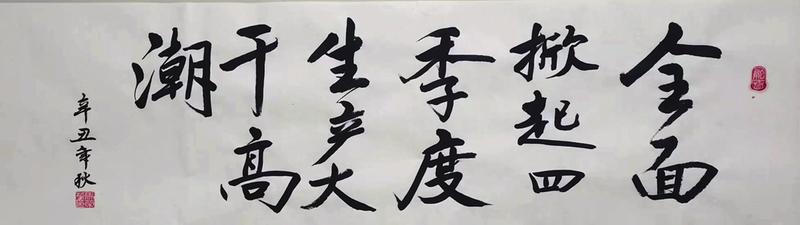 全面
掀起四
季度
生产大
干高
潮
辛丑年秋